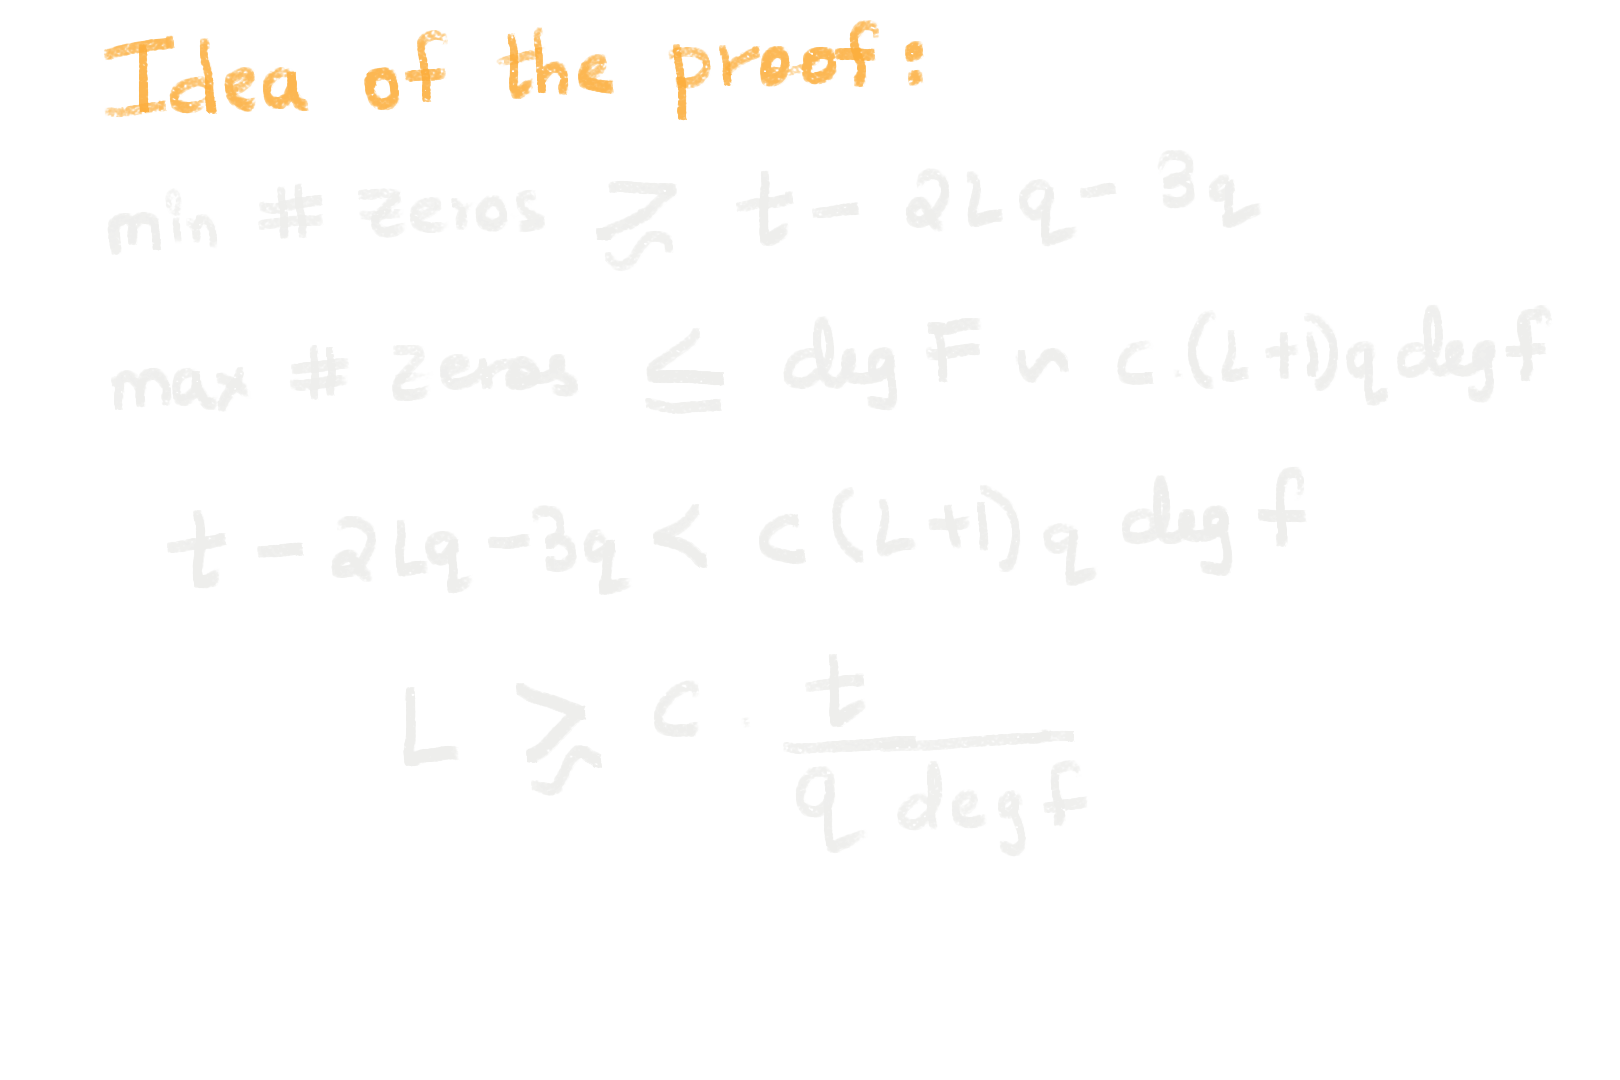 Idea of the proof:
min # zeros ≳ t - 2Lq - 3q
max # zeros ≤ deg F ~ c.(L+1)q deg f
t - 2Lq - 3q < c(L+1)q deg f
L ≳ c . t
q deg f